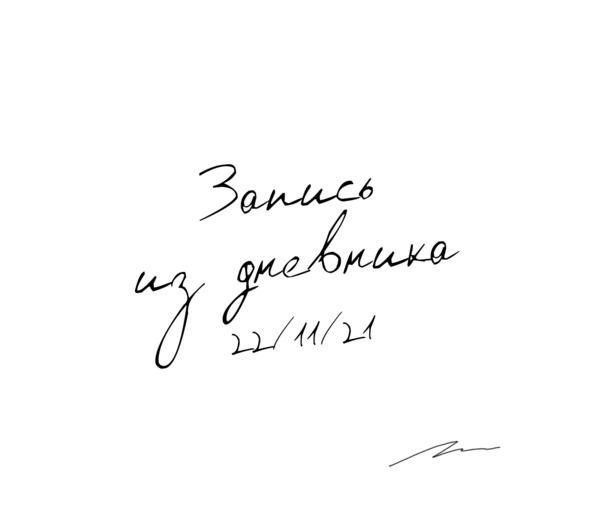 Запись
из дневника
22/11/21